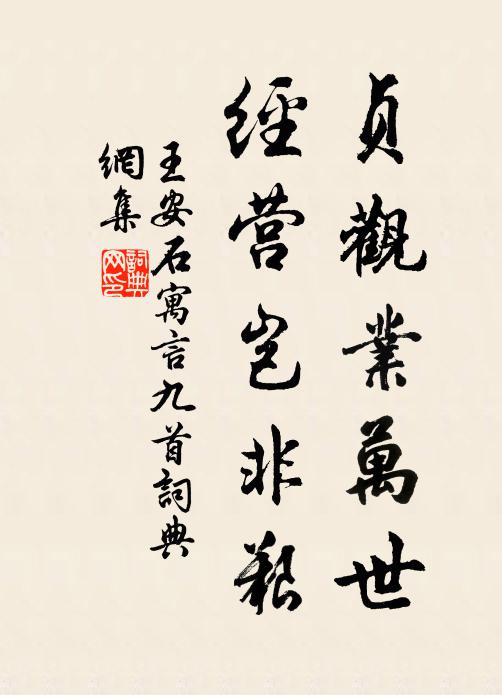 貞觀業萬世
經营岂非艱
王安石寓言九首詞典
網集
詞典
网印